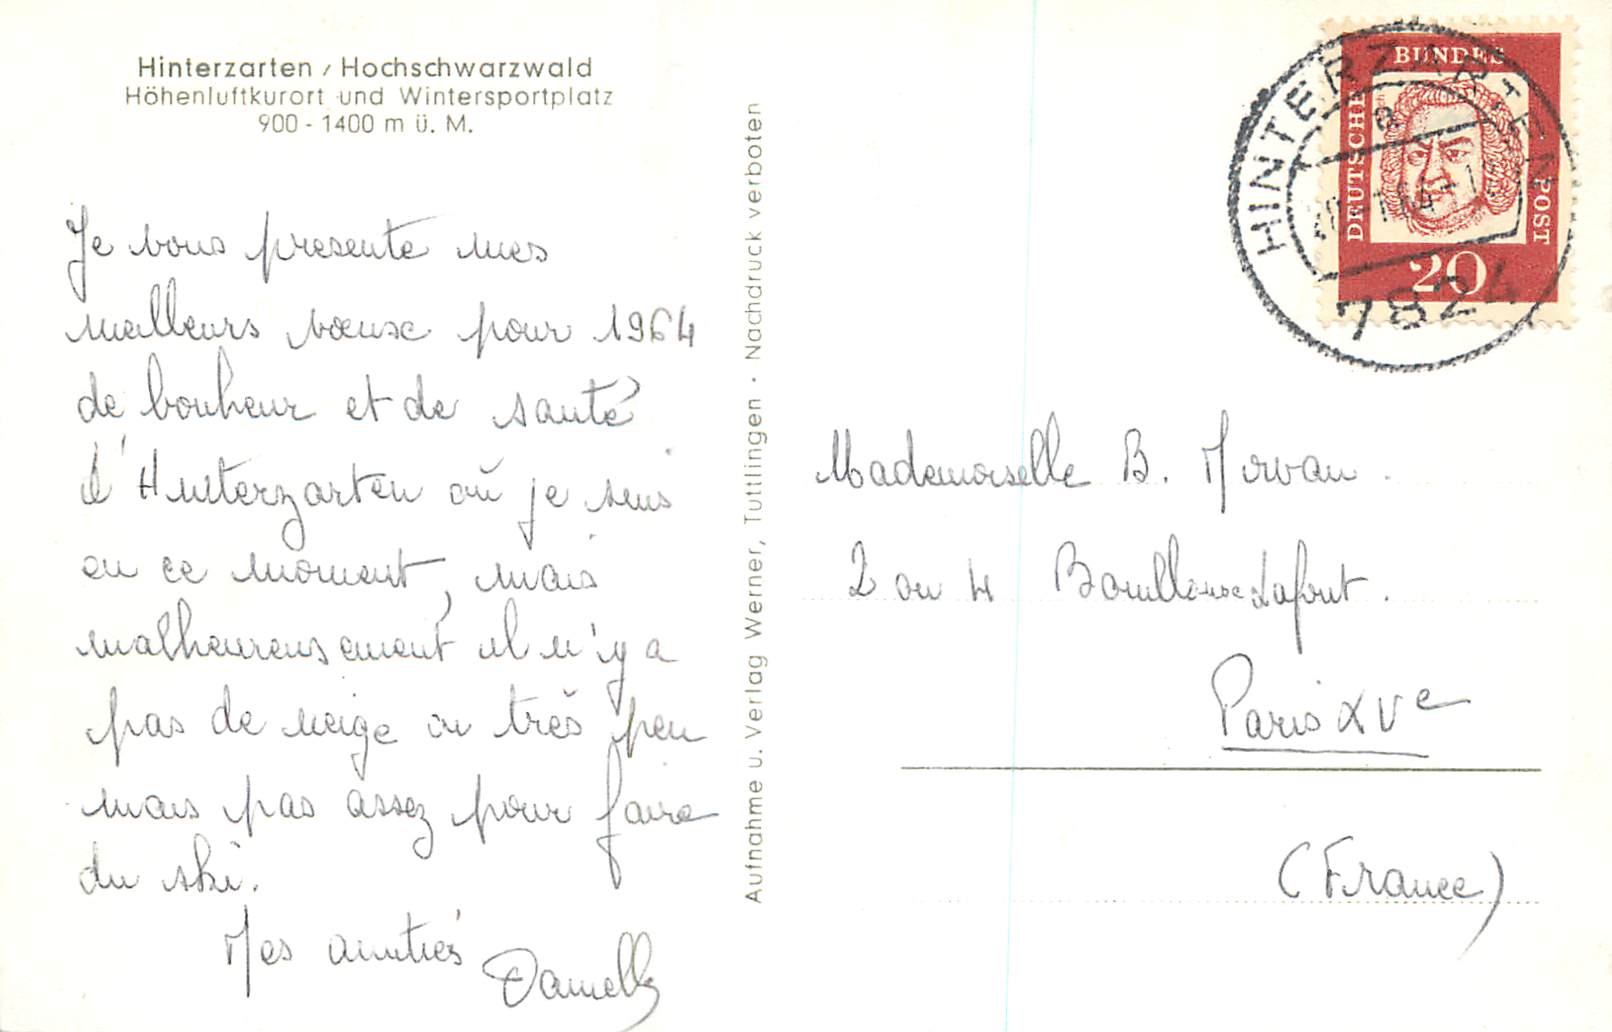 Hinterzarten / Hochschwarzwald
Höhenluftkurort und Wintersportplatz
900 - 1400 m ü. M.
Je vous presente mes
meilleurs voeux pour 1964
de bonheur et de santé
d'Hinterzarten où je suis
en ce moment, mais
malheureusement il n'y a
pas de neige ou très peu
mais pas assez pour faire
du ski.
Mes amitiés
Danielle
Aufnahme u. Verlag Werner, Tuttlingen · Nachdruck verboten
DEUTSCHE BUNDESPOST
20
HINTERZARTEN
a
7824
Mademoiselle B. Morvan.
2 ou 4 Bouilloux Lafont.
Paris XVe
(France)